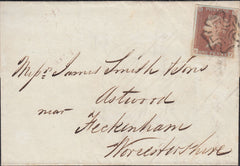 Messrs James Smith & Sons
Astwood
near
Feckenham
Worcestershire